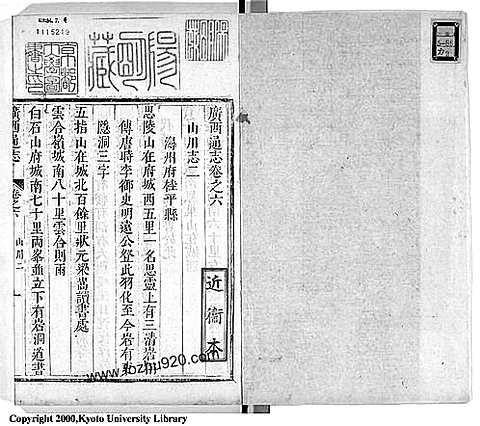 廣西通志卷之六
山川志二
潯州府桂平縣
思陵山在府城西五里一名思靈上有三清岩相
傳唐時李御史明遠公登此羽化至今岩有
隠洞三字
五指山在城北百餘里狀元梁嵩讀書處
雲合嶺城南八十里雲合則雨
白石山府城南七十里兩峯並立下有岩洞道書
廣西通志
卷之六
山川二
近衞本
1115249
www.lozhu920.com
Copyright 2000,Kyoto University Library